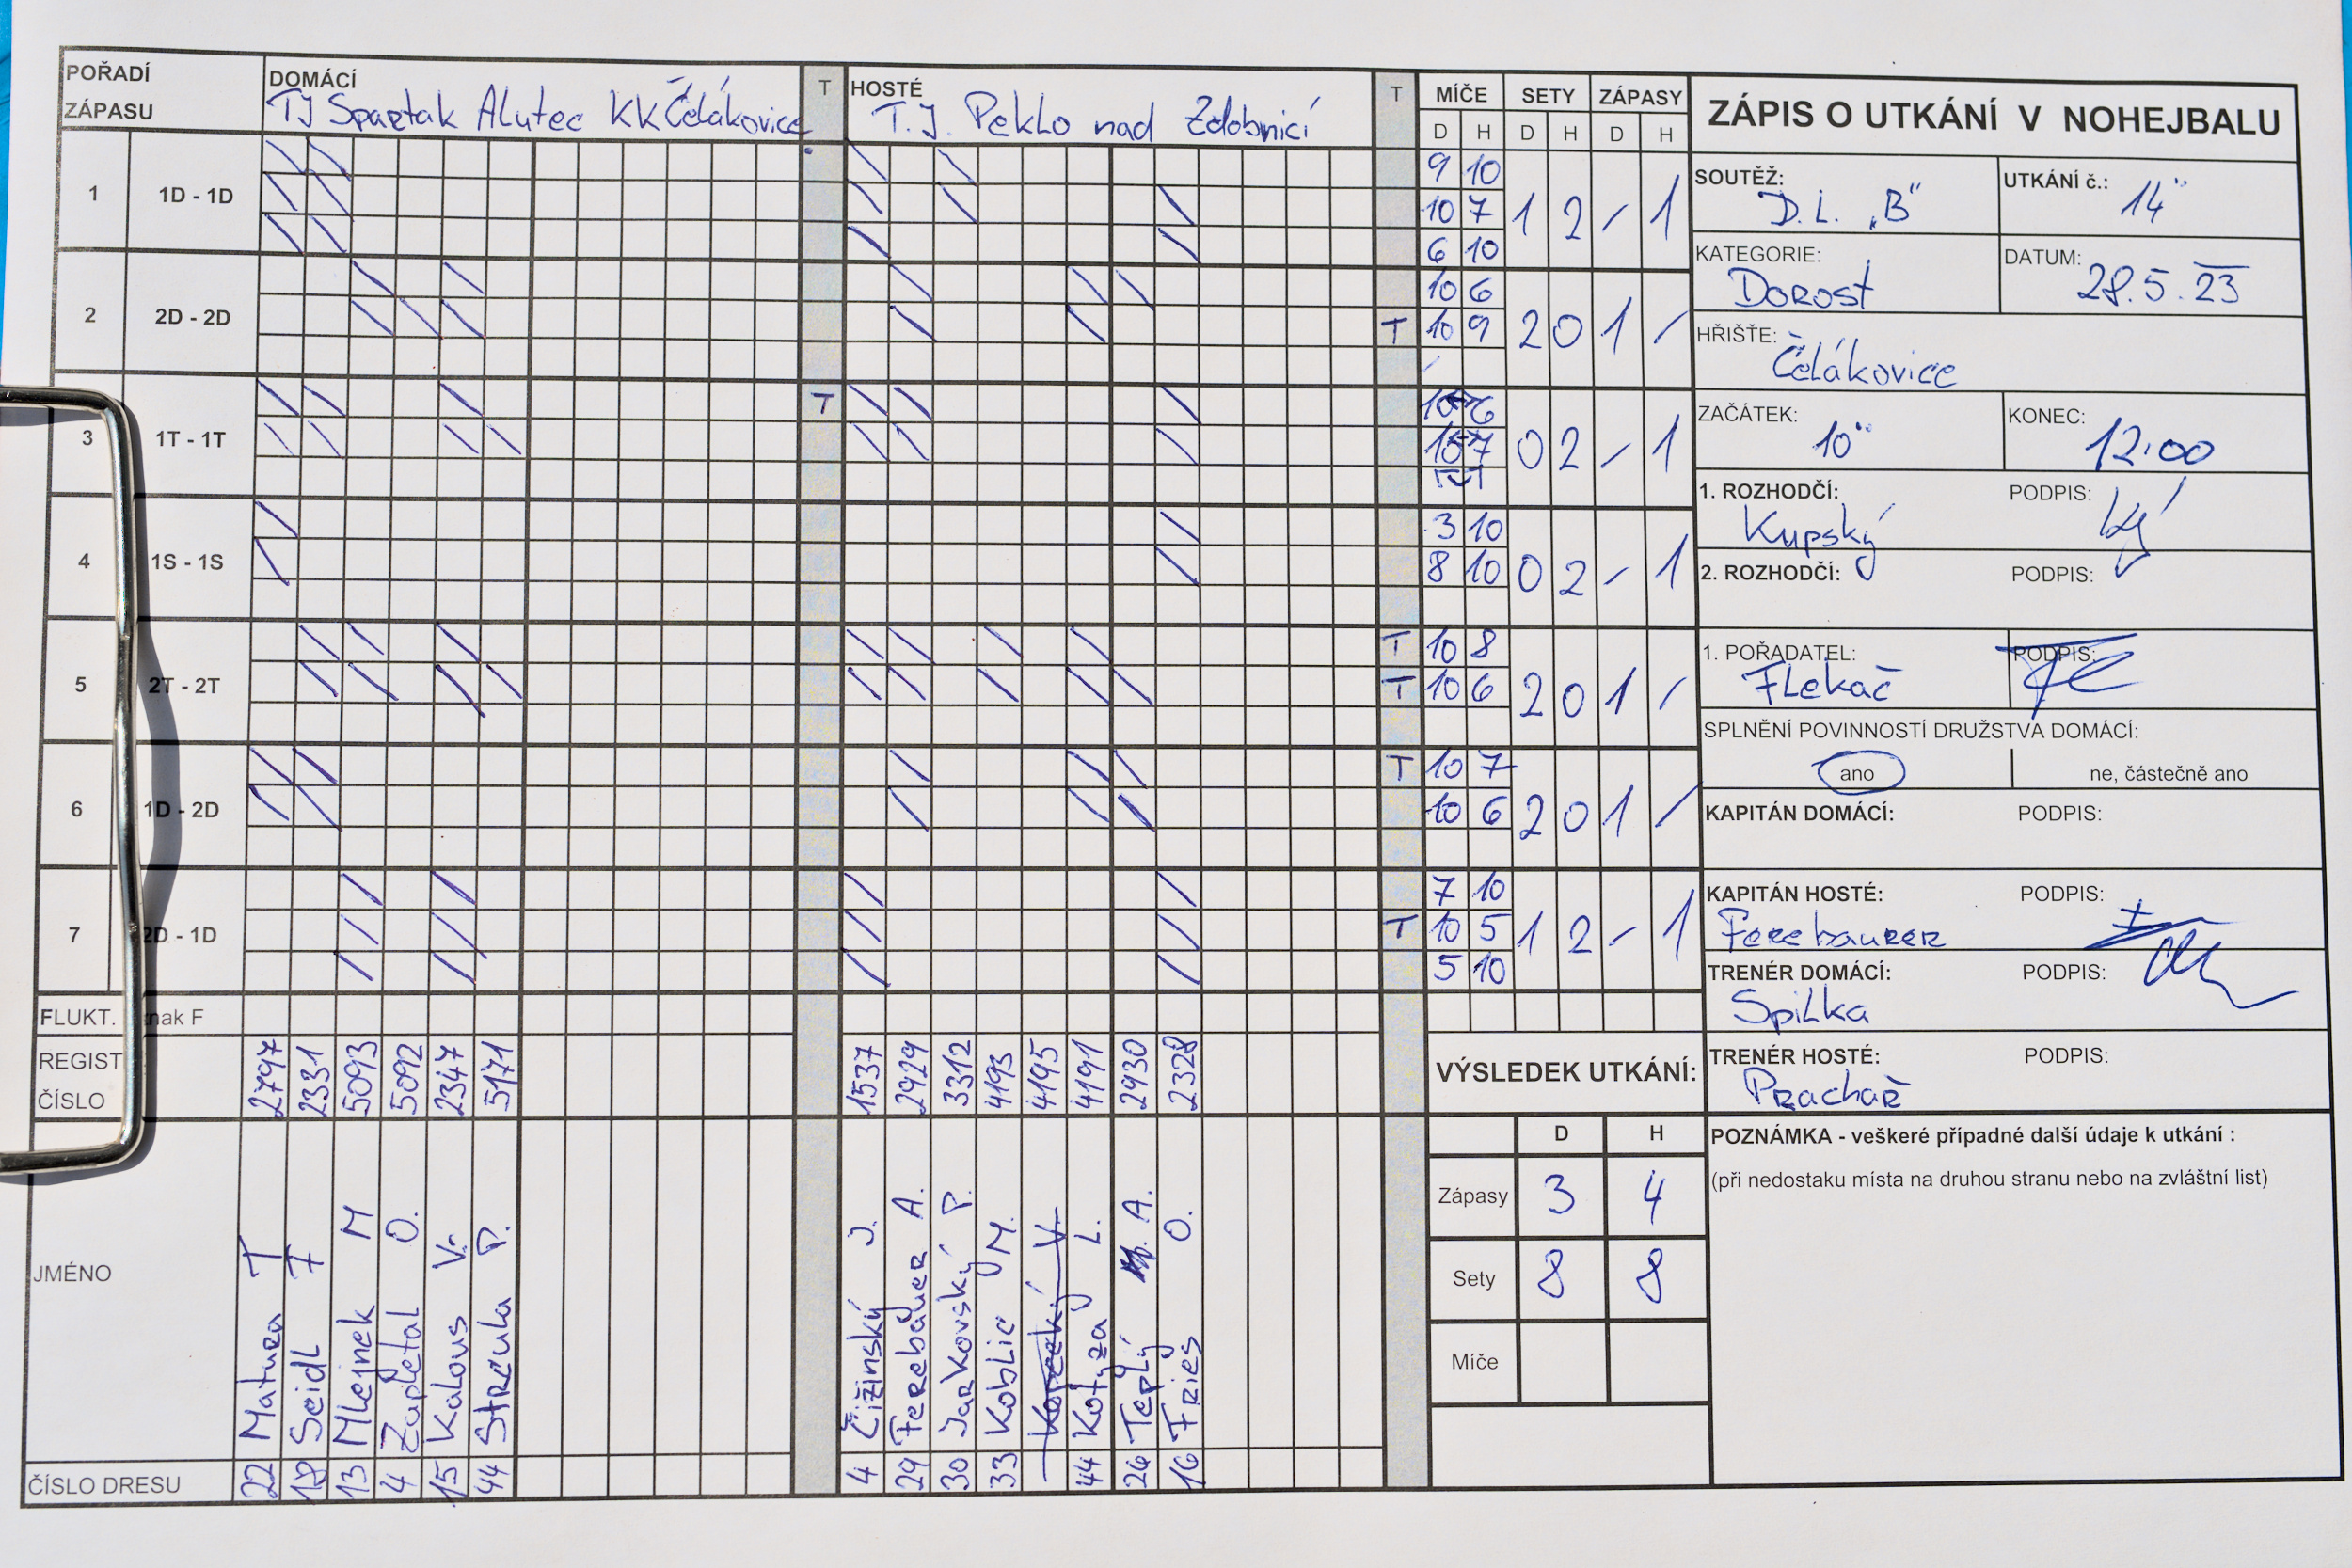 POŘADÍ ZÁPASU
DOMÁCÍ
TJ Spartak Alutec KK Čelákovice
T
HOSTÉ
T.J. Peklo nad Zdobnicí
T
MÍČE SETY ZÁPASY
D H D H D H
1 1D - 1D
9 10
10 7
6 10
1 2 - 1
2 2D - 2D
10 6
T 10 9
2 0 1 -
3 1T - 1T
T
6
7
0 2 - 1
4 1S - 1S
3 10
8 10
0 2 - 1
5 2T - 2T
T 10 8
T 10 6
2 0 1 -
6 1D - 2D
T 10 7
10 6
2 0 1 -
7 2D - 1D
7 10
T 10 5
5 10
1 2 - 1
FLUKT. nak F
REGIST
ČÍSLO
2797 2331 5093 5092 2347 5171
1537 2929 3312 4193 4195 4191 2930 2328
JMÉNO
Matura T
Seidl F
Mlejnek M
Zapletal O.
Kalous V.
Strcula P.
Čižinský J.
Ferebauer A.
Jarkovský P.
Koblic M.
Kotyza L.
Teplý A.
Fries O.
ČÍSLO DRESU
22 18 13 4 15 44
4 29 30 33 44 26 16
VÝSLEDEK UTKÁNÍ:
D H
Zápasy 3 4
Sety 8 8
Míče
ZÁPIS O UTKÁNÍ V NOHEJBALU
SOUTĚŽ: D.L. „B"
UTKÁNÍ č.: 14
KATEGORIE: Dorost
DATUM: 28.5.23
HŘIŠTĚ: Čelákovice
ZAČÁTEK: 10
KONEC: 12:00
1. ROZHODČÍ: Kupský
PODPIS:
2. ROZHODČÍ:
PODPIS:
1. POŘADATEL: Flekač
PODPIS:
SPLNĚNÍ POVINNOSTÍ DRUŽSTVA DOMÁCÍ:
ano
ne, částečně ano
KAPITÁN DOMÁCÍ:
PODPIS:
KAPITÁN HOSTÉ: Ferebaurer
PODPIS:
TRENÉR DOMÁCÍ: Spilka
PODPIS:
TRENÉR HOSTÉ: Prachař
PODPIS:
POZNÁMKA - veškeré případné další údaje k utkání :
(při nedostaku místa na druhou stranu nebo na zvláštní list)